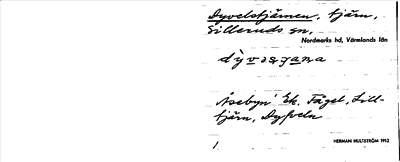 Dyvelstjärnen, tjärn,
Silleruds sn,
Nordmarks hd, Värmlands län
Åsebyn Ek. Fågel, Lill-
tjärn, Dyveln
HERMAN HULTSTRÖM 1912
1